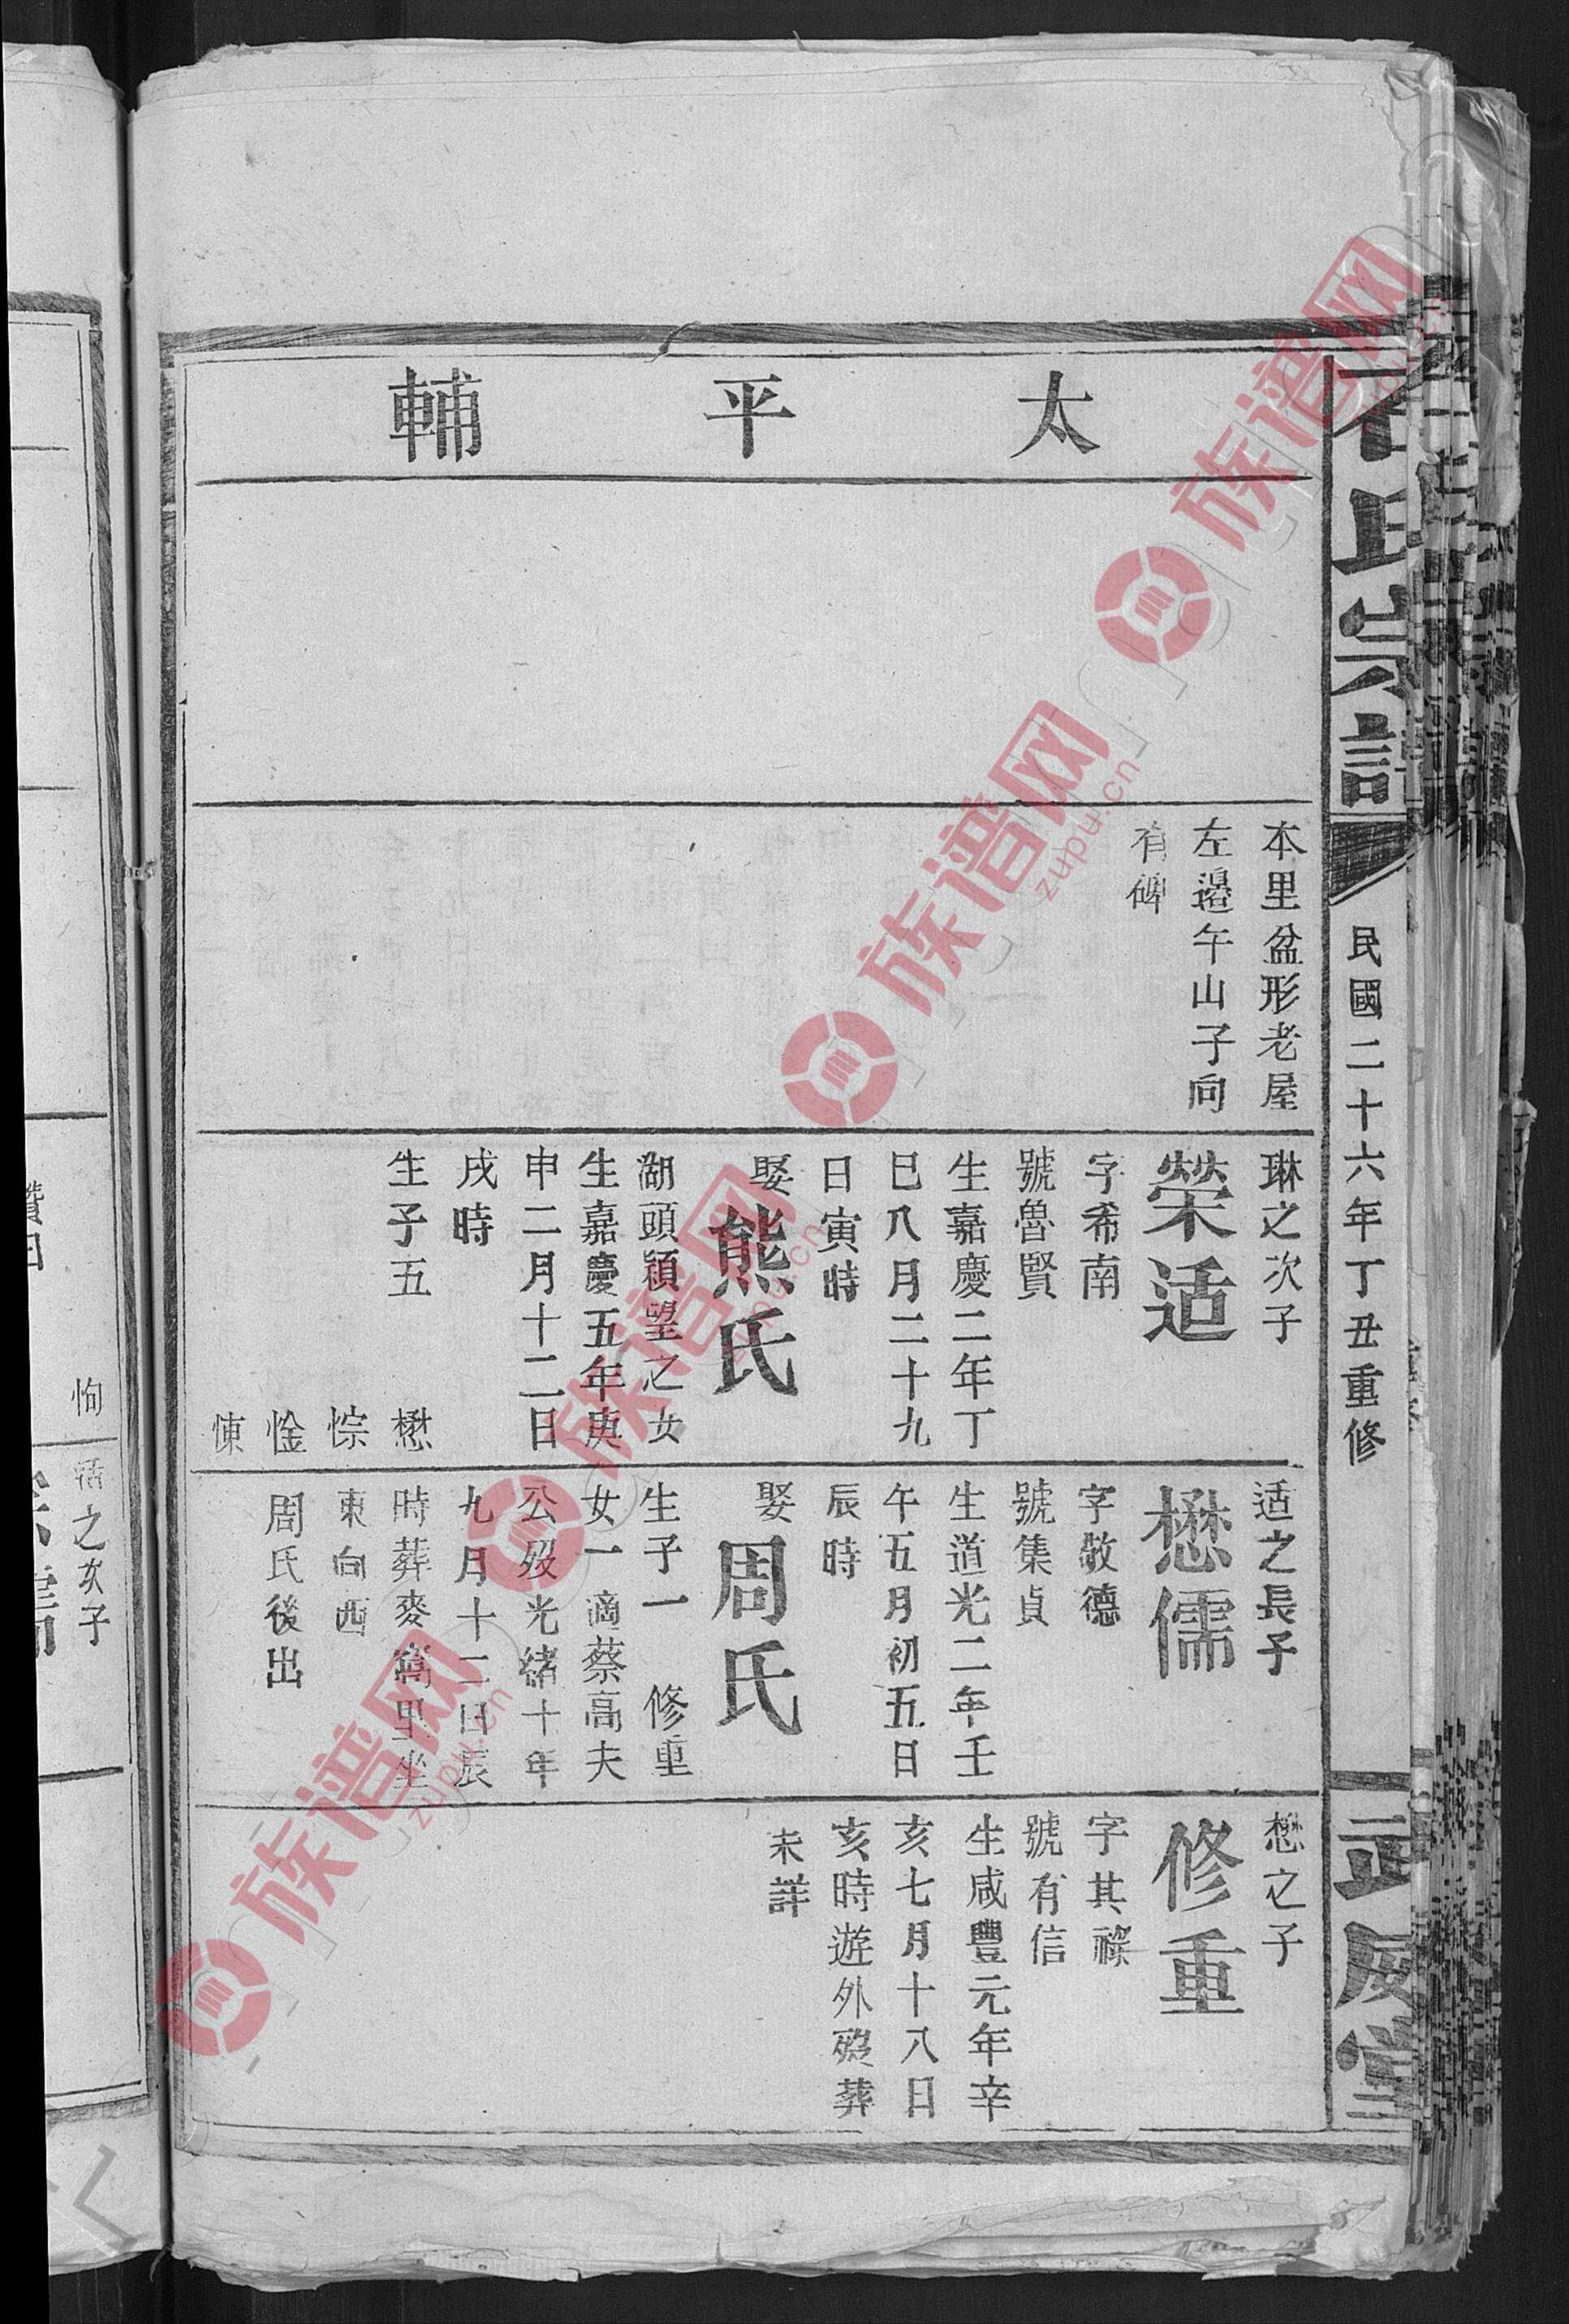 石氏宗譜
民國二十六年丁丑重修
武威堂
太平輔
本里盆形老屋
左邉午山子向
有碑
琳之次子
榮适
字希南
號魯賢
生嘉慶二年丁
巳八月二十九
日寅時
娶熊氏
湖頭穎望之女
生嘉慶五年庚
申二月十二日
戌時
生子五 懋
悰
惍
悚
适之長子
懋儒
字敬德
號集貞
生道光二年壬
午五月初五日
辰時
娶周氏
生子一 修重
女一適蔡高夫
公歿光緒十年
九月十二日辰
時葬麥窩里坐
東向西
周氏後出
懋之子
修重
字其祿
號有信
生咸豐元年辛
亥七月十八日
亥時遊外歿葬
未詳
恂
活之次子
族谱网
zupu.cn
族谱网
zupu.cn
族谱网
zupu.cn
族谱网
zupu.cn